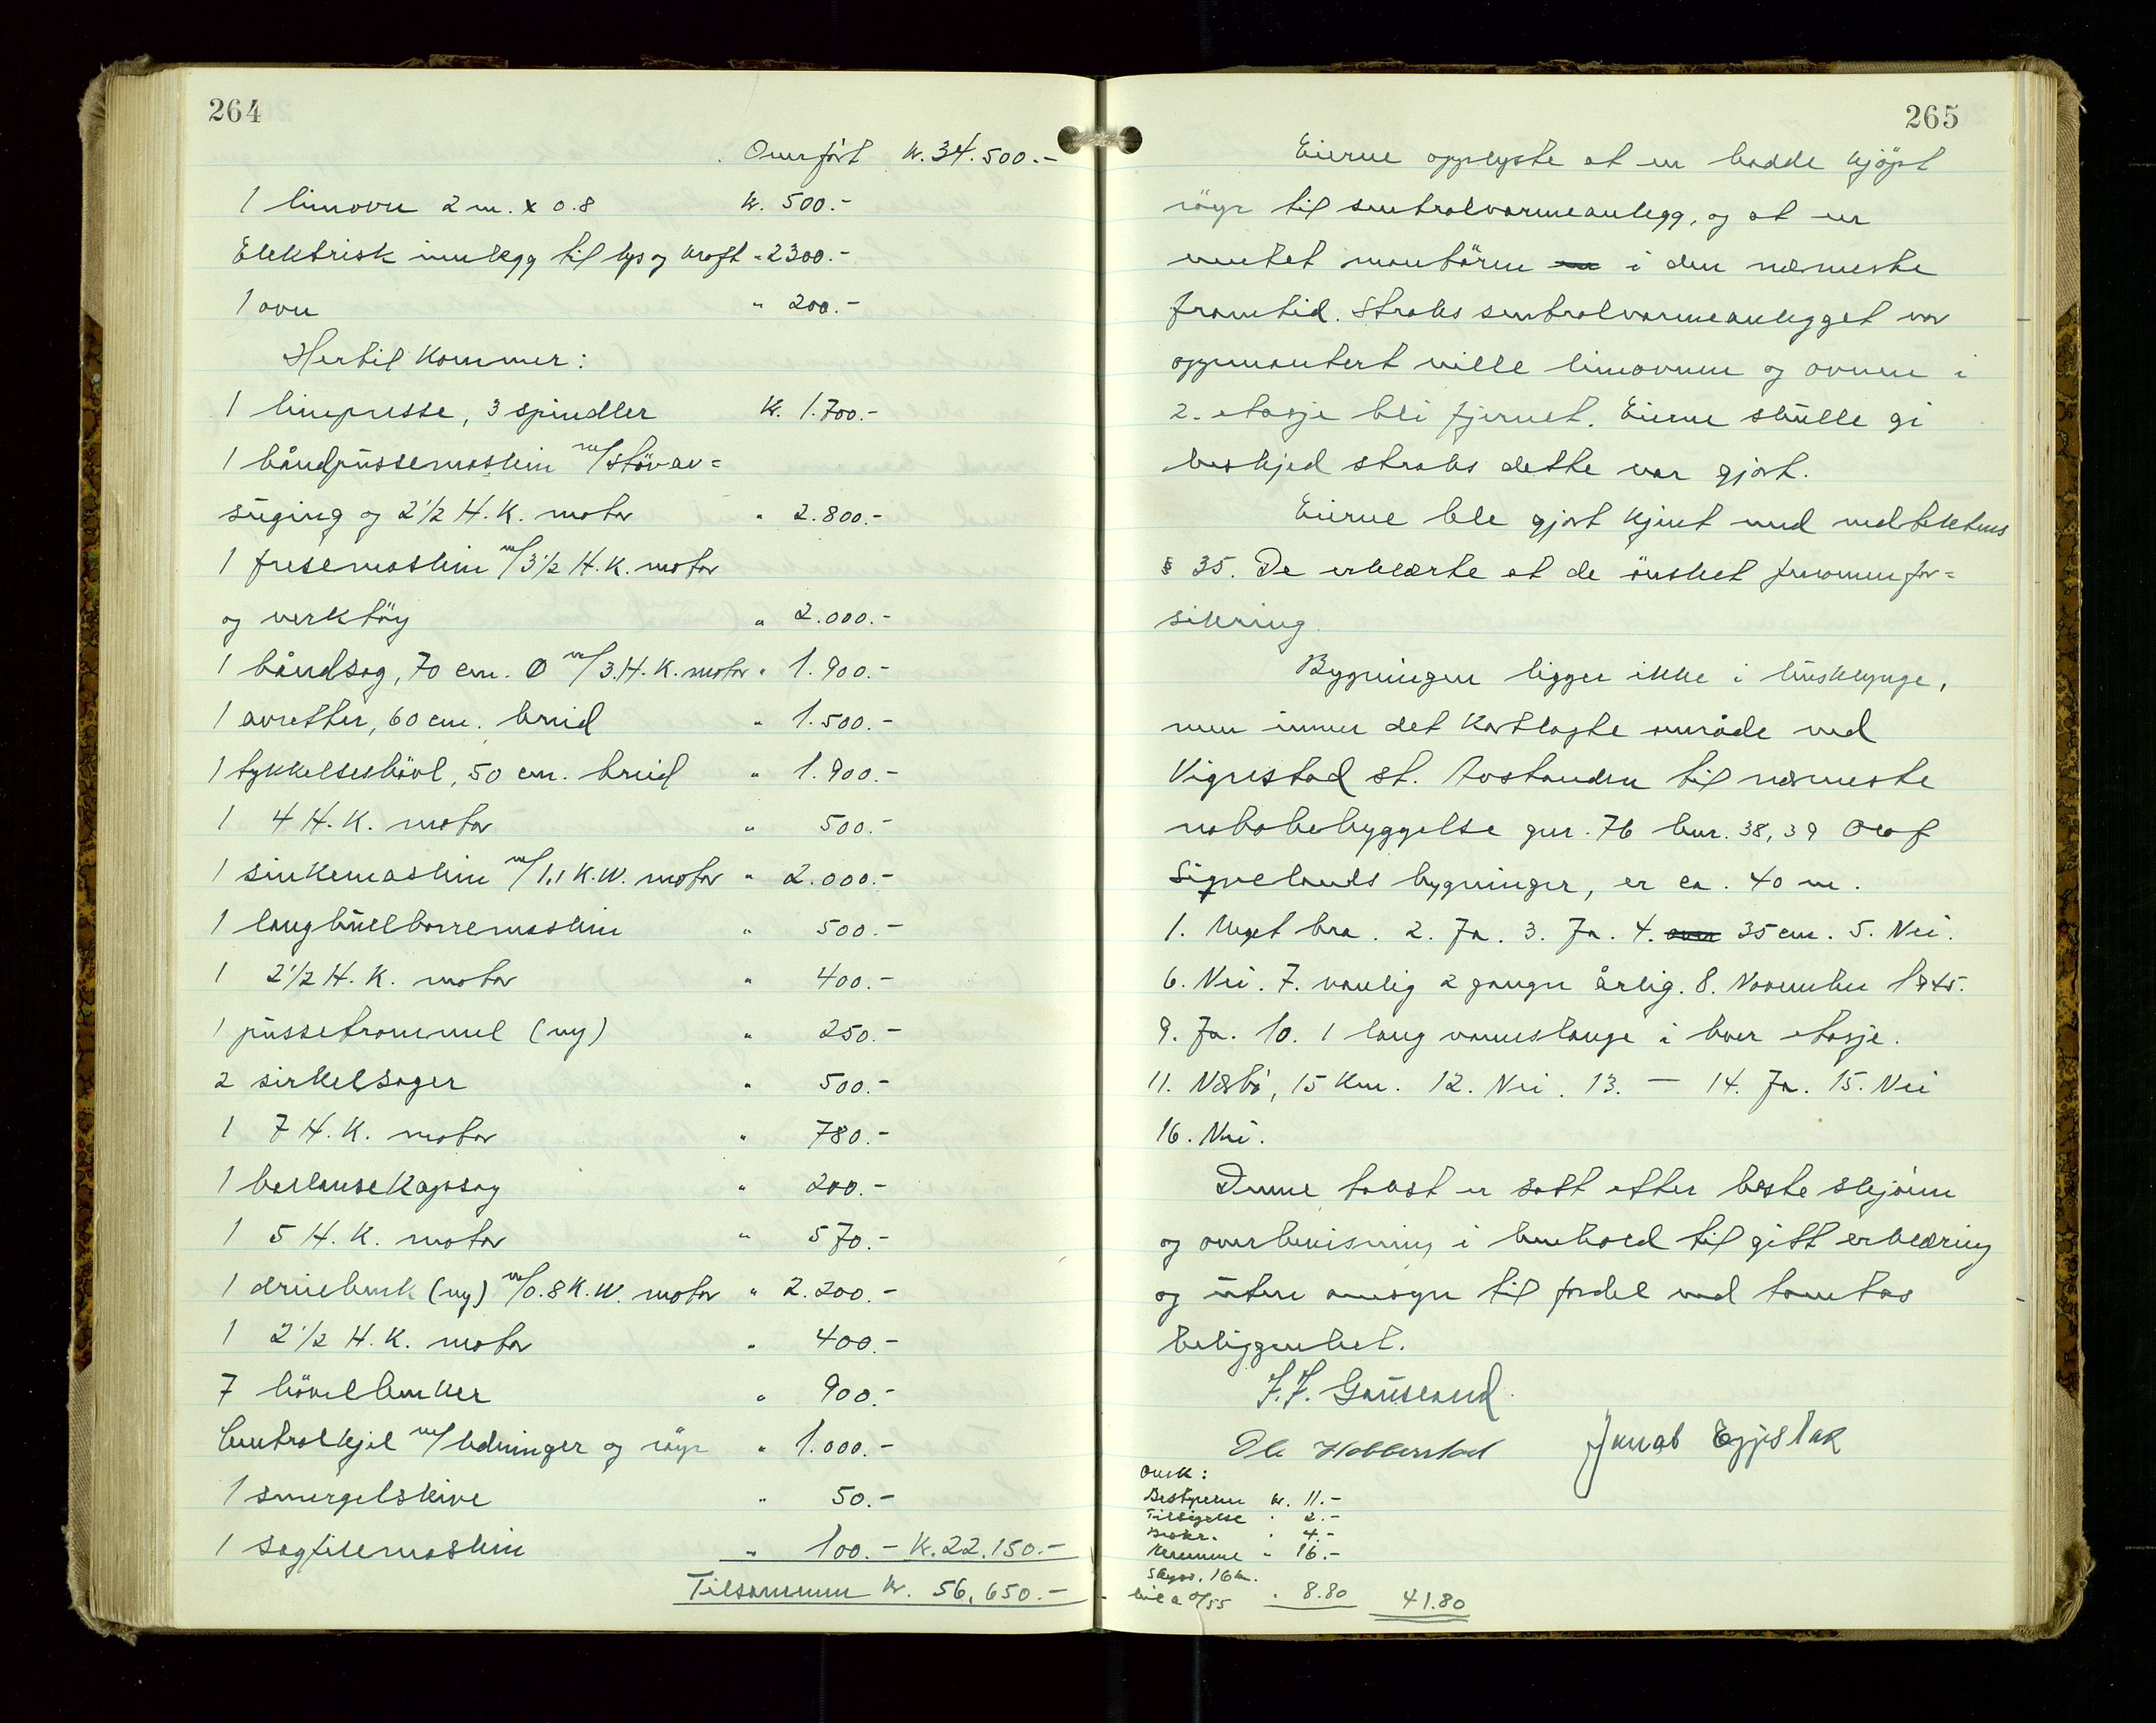 264
Overført kr. 34.500.-
1 limovn 2 m. x 0.8 kr. 500.-
Elektrisk innlegg til lys og kraft " 2300.-
1 ovn " 200.-
Hertil kommer:
1 limpresse, 3 spindler kr. 1.700.-
1 båndpussemaskin m/støvav=
suging og 2 1/2 H.K. motor " 2.800.-
1 fresemaskin m/3 1/2 H.K. motor
og verktøy " 2.000.-
1 båndsag, 70 cm. Ø m/3.H.K. motor " 1.900.-
1 avretter, 60 cm. breid " 1.500.-
1 tykkelseshøvl, 50 cm. breid " 1.900.-
1 4 H.K. motor " 500.-
1 sinkemaskin m/1,1 K.W. motor " 2.000.-
1 langhullborremaskin " 500.-
1 2 1/2 H.K. motor " 400.-
1 pussetrommel (ny) " 250.-
2 sirkelsager " 500.-
1 7 H.K. motor " 780.-
1 balansekapsag " 200.-
1 5 H.K. motor " 570.-
1 dreiebenk (ny) m/0.8 K.W. motor " 2.200.-
1 2 1/2 H.K. motor " 400.-
7 høvelbenker " 900.-
Sentralkjel m/ledninger og røyr " 1.000.-
1 smergelskive " 50.-
1 sagfilemaskin " 100.- Kr. 22.150.-
Tilsammen kr. 56,650.-
265
Eierne opplyste at en hadde kjøpt
røyr til sentralvarmeanlegg, og at en
ventet montøren i den nærmeste
framtid. Straks sentralvarmeanlegget var
oppmontert ville limovnen og ovnen i
2. etasje bli fjernet. Eierne skulle gi
beskjed straks dette var gjort.
Eierne ble gjort kjent med vedtektens
§ 35. De erklærte at de ønsket
sikring.
Bygningen ligger ikke i husklynge,
men innen det kartlagte område ved
Vigrestad st. Avstanden til nærmeste
nabobebyggelse gnr. 76 bnr. 38, 39 Olaf
Sigvelands bygninger, er ca. 40 m.
1. Meget bra. 2. Ja. 3. Ja. 4. 35 cm. 5. Nei.
6. Nei. 7. vanlig 2 ganger årlig. 8. November 1945.
9. Ja. 10. 1 lang vannslange i hver etasje.
11. Nærbø, 15 km. 12. Nei. 13. — 14. Ja. 15. Nei
16. Nei.
Denne takst er satt etter beste skjønn
og overbevisning i henhold til gitt erklæring
og uten omsyn til fordel ved tomtas
beliggenhet.
J.J. Gausland.
Ole Hobberstad Jakob Eggstak
Omk:
Bestyreren kr. 11.-
Tilsigelse " 2.-
" 4.-
" 16.-
Skyss. 16 km.
bil a 0/55 " 8.80 41.80